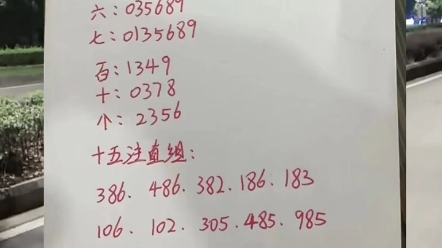 六：035689
七：0135689
百：1349
十：0378
个：2356
十五注直组：
386. 486. 382. 186. 183
106. 102. 305. 485. 985